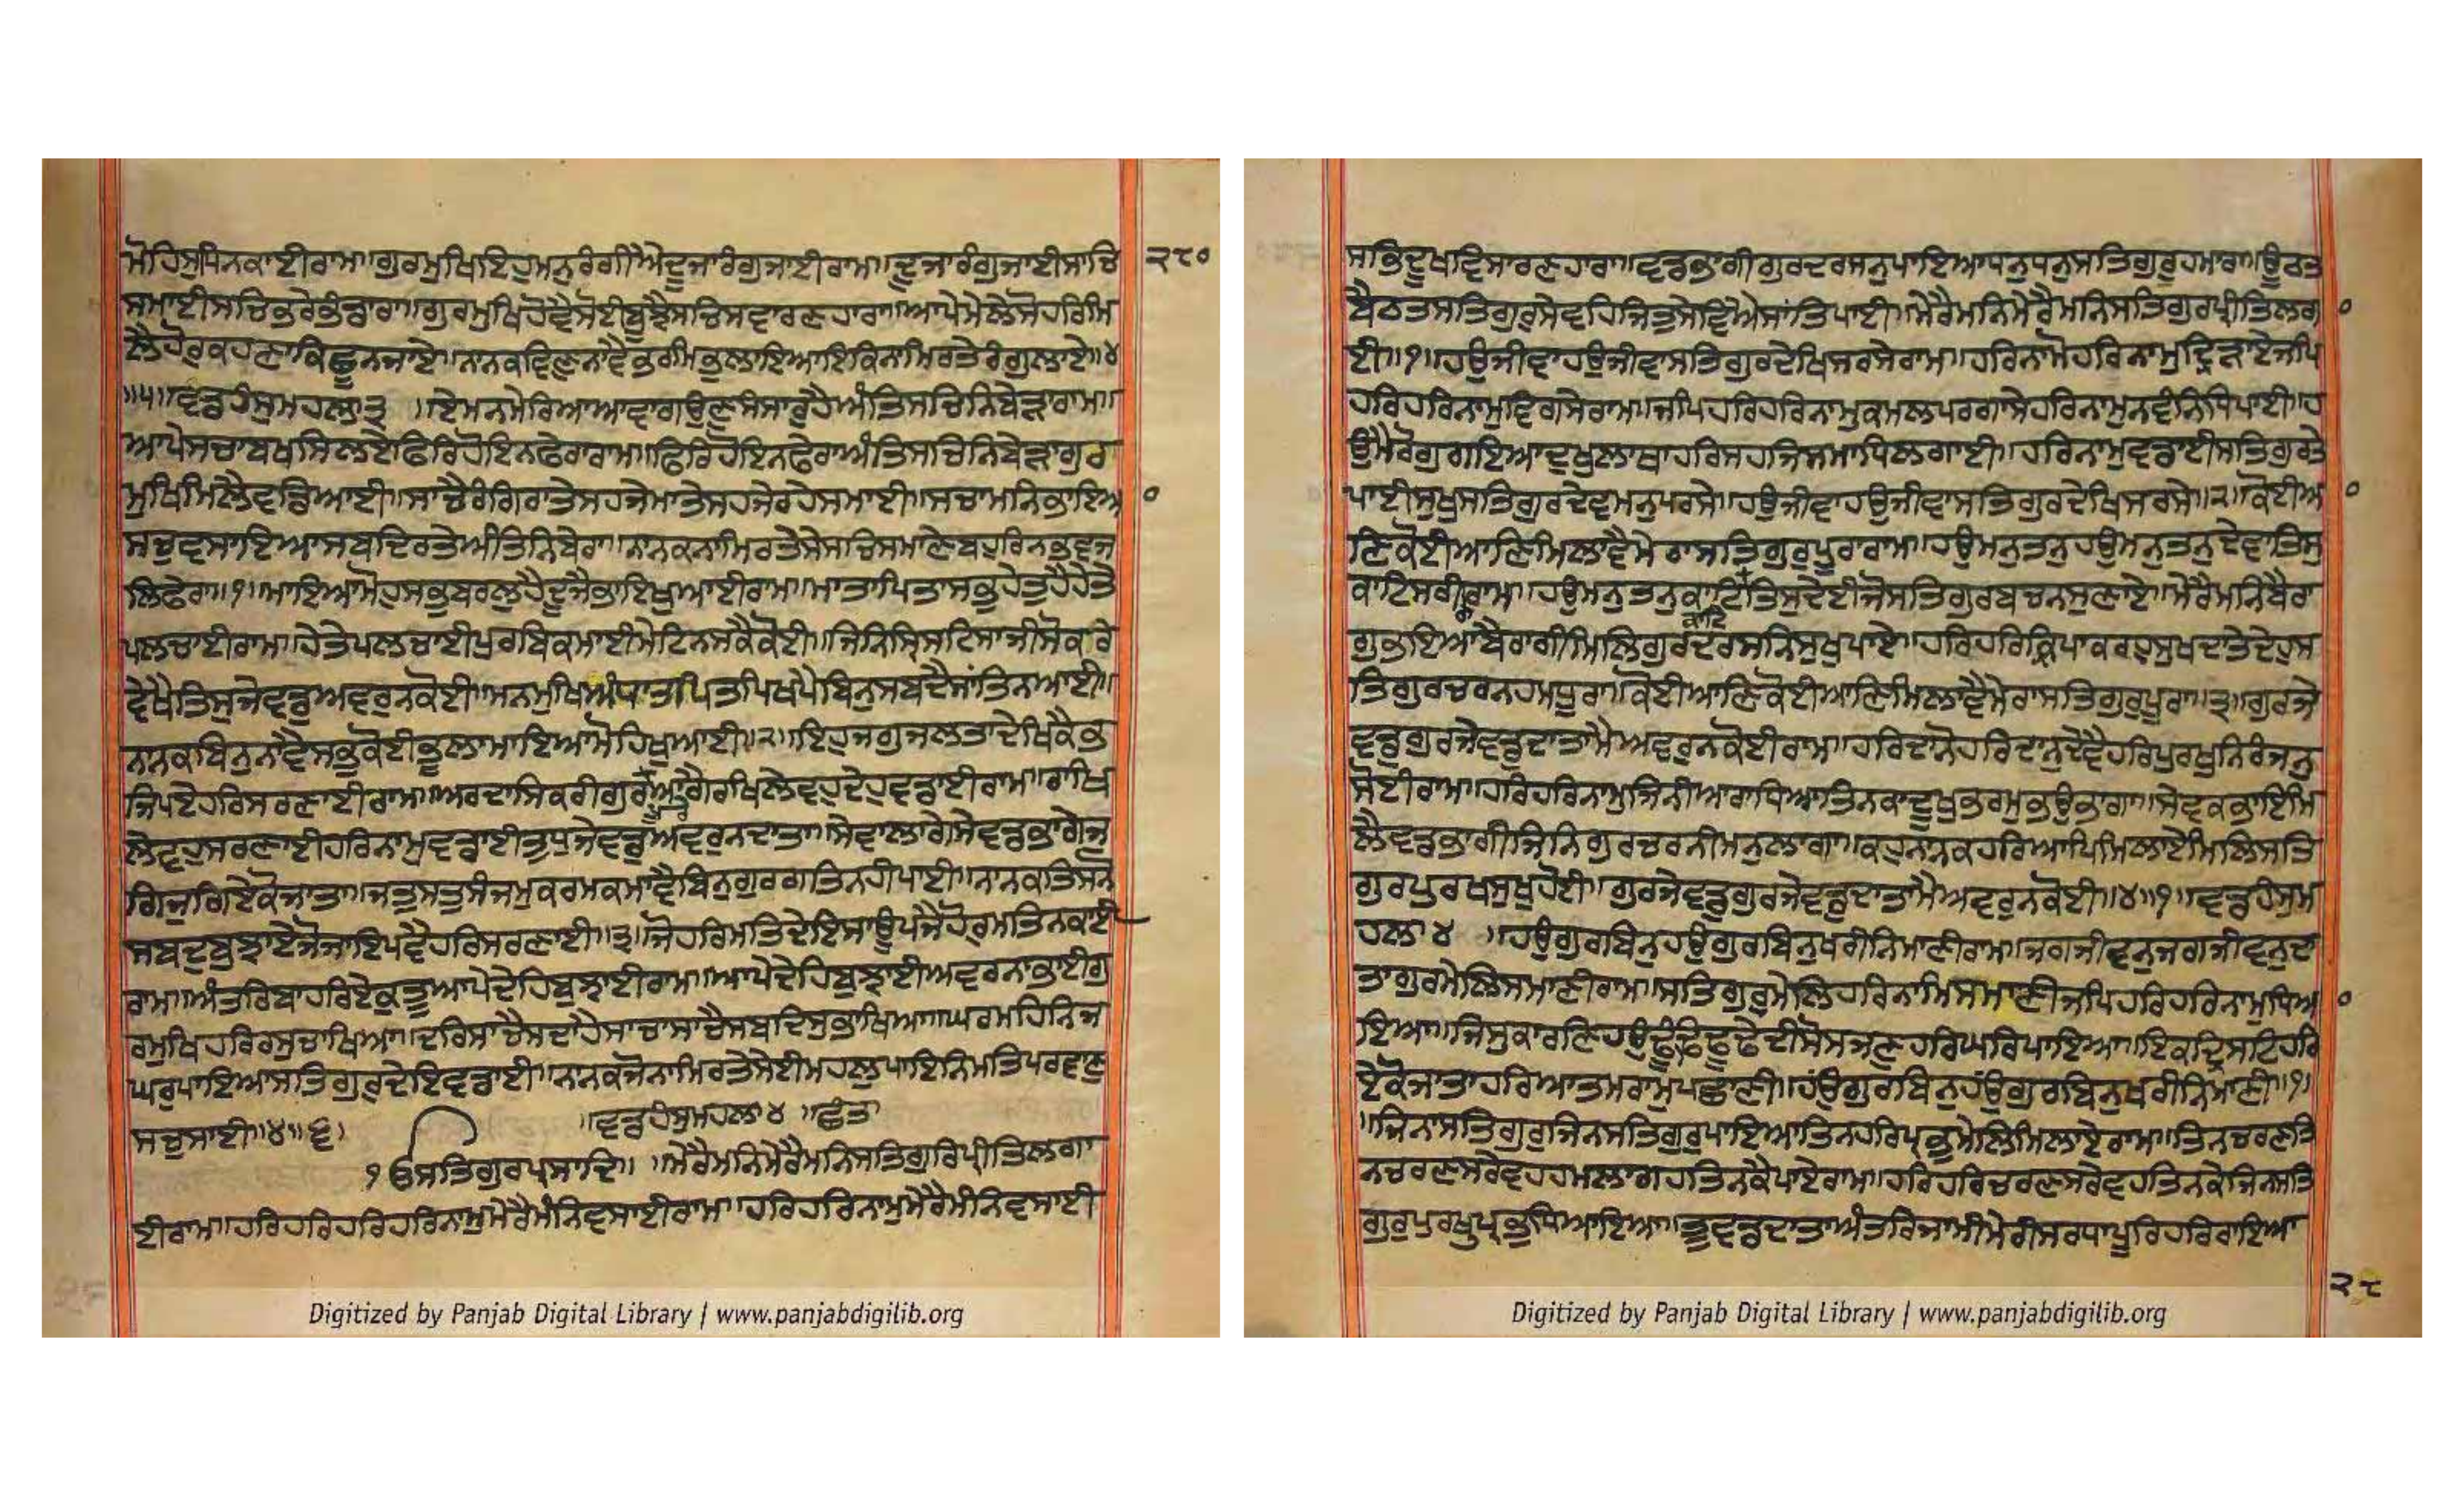 ਮੋਹਿਸੁਪਿਨਕਾਈਰਾਮ॥ਗੁਰਮੁਖਿਇਹੁਮਨੁਰੰਗੀਐਦੂਜਾਰੰਗੁਜਾਈਰਾਮ॥ਦੂਜਾਰੰਗੁਜਾਈਸਾਚਿ ੨੮੦
ਸਮਾਈਸਚਿਭਰੇਭੰਡਾਰਾ॥ਗੁਰਮੁਖਿਹੋਵੈਸੋਈਬੂਝੈਸਚਿਸਵਾਰਣਹਾਰਾ॥ਆਪੇਮੇਲੇਸੋਹਰਿਮਿ
ਲੈਹੋਰੁਕਹਣਾਕਿਛੂਨਜਾਏ॥ਨਾਨਕਵਿਣੁਨਾਵੈਭਰਮਿਭੁਲਾਇਆਇਕਿਨਾਮਿਰਤੇਰੰਗੁਲਾਏ॥੪
॥੫॥ਵਡਹੰਸੁਮਹਲਾ੩ ॥ਏਮਨਮੇਰਿਆਆਵਾਗਉਣੁਸੰਸਾਰੁਹੈਅੰਤਿਸਚਿਨਿਬੇੜਾਰਾਮ॥
ਆਪੇਸਚਾਬਖਸਿਲਏਫਿਰਿਹੋਇਨਫੇਰਾਰਾਮ॥ਫਿਰਿਹੋਇਨਫੇਰਾਅੰਤਿਸਚਿਨਿਬੇੜਾਗੁਰ
ਮੁਖਿਮਿਲੈਵਡਿਆਈ॥ਸਾਚੈਰੰਗਿਰਾਤੇਸਹਜੇਮਾਤੇਸਹਜੇਰਹੇਸਮਾਈ॥ਸਚਾਮਨਿਭਾਇਆ
ਸਚੁਵਸਾਇਆਸਬਦਿਰਤੇਅੰਤਿਨਿਬੇਰਾ॥ਨਾਨਕਨਾਮਿਰਤੇਸੇਸਚਿਸਮਾਣੇਬਹੁਰਿਨਭਵਜ
ਲਿਫੇਰਾ॥੧॥ਮਾਇਆਮੋਹੁਸਭੁਬਰਲੁਹੈਦੂਜੈਭਾਇਖੁਆਈਰਾਮ॥ਮਾਤਾਪਿਤਾਸਭੁਹੇਤੁਹੈਹੇਤੇ
ਪਲਚਾਈਰਾਮ॥ਹੇਤੇਪਲਚਾਈਪੁਰਬਿਕਮਾਈਮੇਟਿਨਸਕੈਕੋਈ॥ਜਿਨਿਸ੍ਰਿਸਟਿਸਾਜੀਸੋਕਰਿ
ਵੇਖੈਤਿਸੁਜੇਵਡੁਅਵਰੁਨਕੋਈ॥ਮਨਮੁਖਿਅੰਧਾਤਪਿਤਪਿਖਪੈਬਿਨੁਸਬਦੈਸਾਂਤਿਨਆਈ॥
ਨਾਨਕਬਿਨੁਨਾਵੈਸਭੁਕੋਈਭੂਲਾਮਾਇਆਮੋਹਿਖੁਆਈ॥੨॥ਇਹੁਜਗੁਜਲਤਾਦੇਖਿਕੈਭ
ਜਿਪਏਹਰਿਸਰਣਾਈਰਾਮ॥ਅਰਦਾਸਿਕਰੀਗੁਰਪੂਰੇਆਗੈਰਖਿਲੇਵਹੁਦੇਹੁਵਡਾਈਰਾਮ॥ਰਖਿ
ਲੇਵਹੁਸਰਣਾਈਹਰਿਨਾਮੁਵਡਾਈਤੁਧੁਜੇਵਡੁਅਵਰੁਨਦਾਤਾ॥ਸੇਵਾਲਾਗੇਸੇਵਡਭਾਗੇਜੁ
ਗਿਜੁਗਿਏਕੋਜਾਤਾ॥ਜਤੁਸਤੁਸੰਜਮੁਕਰਮਕਮਾਵੈਬਿਨੁਗੁਰਗਤਿਨਹੀਪਾਈ॥ਨਾਨਕਤਿਸਨੋ
ਸਬਦੁਬੁਝਾਏਜੋਜਾਇਪਵੈਹਰਿਸਰਣਾਈ॥੩॥ਜੋਹਰਿਮਤਿਦੇਇਸਾਊਪਜੈਹੋਰਮਤਿਨਕਾਈ
ਰਾਮ॥ਅੰਤਰਿਬਾਹਰਿਏਕੁਤੂਆਪੇਦੇਹਿਬੁਝਾਈਰਾਮ॥ਆਪੇਦੇਹਿਬੁਝਾਈਅਵਰਨਾਭਾਈਗੁ
ਰਮੁਖਿਹਰਿਰਸੁਚਾਖਿਆ॥ਦਰਿਸਾਚੈਸਦਾਹੈਸਾਚਾਸਾਚੈਸਬਦਿਸੁਭਾਖਿਆ॥ਘਰਮਹਿਨਿਜ
ਘਰੁਪਾਇਆਸਤਿਗੁਰੁਦੇਇਵਡਾਈ॥ਨਾਨਕਜੋਨਾਮਿਰਤੇਸੇਈਮਹਲੁਪਾਇਨਿਮਤਿਪਰਵਾਣੁ
ਸਚੁਸਾਈ॥੪॥੬॥ ॥ਵਡਹੰਸੁਮਹਲਾ੪ ॥ਛੰਤ
ੴਸਤਿਗੁਰਪ੍ਰਸਾਦਿ॥ ॥ਮੇਰੈਮਨਿਮੇਰੈਮਨਿਸਤਿਗੁਰਿਪ੍ਰੀਤਿਲਗਾ
ਈਰਾਮ॥ਹਰਿਹਰਿਹਰਿਹਰਿਨਾਮੁਮੇਰੈਮੰਨਿਵਸਾਈਰਾਮ॥ਹਰਿਹਰਿਨਾਮੁਮੇਰੈਮੰਨਿਵਸਾਈ
Digitized by Panjab Digital Library | www.panjabdigilib.org
ਸਭਿਦੂਖਵਿਸਾਰਣਹਾਰਾ॥ਵਡਭਾਗੀਗੁਰਦਰਸਨੁਪਾਇਆਧਨੁਧਨੁਸਤਿਗੁਰੂਹਮਾਰਾ॥ਊਠਤ
ਬੈਠਤਸਤਿਗੁਰੁਸੇਵਹਿਜਿਤੁਸੇਵਿਐਸਾਂਤਿਪਾਈ॥ਮੇਰੈਮਨਿਮੇਰੈਮਨਿਸਤਿਗੁਰਪ੍ਰੀਤਿਲਗਾ
ਈ॥੧॥ਹਉਜੀਵਾਹਉਜੀਵਾਸਤਿਗੁਰਦੇਖਿਸਰਸੇਰਾਮ॥ਹਰਿਨਾਮੋਹਰਿਨਾਮੁਦ੍ਰਿੜਾਏਜਪਿ
ਹਰਿਹਰਿਨਾਮੁਵਿਗਸੇਰਾਮ॥ਜਪਿਹਰਿਹਰਿਨਾਮੁਕਮਲਪਰਗਾਸੇਹਰਿਨਾਮੁਨਵੰਨਿਧਿਪਾਈ॥ਹ
ਉਮੈਰੋਗੁਗਇਆਦੁਖੁਲਾਥਾਹਰਿਸਹਜਿਸਮਾਧਿਲਗਾਈ॥ਹਰਿਨਾਮੁਵਡਾਈਸਤਿਗੁਰਤੇ
ਪਾਈਸੁਖੁਸਤਿਗੁਰਦੇਵਮਨੁਪਰਸੇ॥ਹਉਜੀਵਾਹਉਜੀਵਾਸਤਿਗੁਰਦੇਖਿਸਰਸੇ॥੨॥ਕੋਈਆ
ਣਿਕੋਈਆਣਿਮਿਲਾਵੈਮੇਰਾਸਤਿਗੁਰੁਪੂਰਾਰਾਮ॥ਹਉਮਨੁਤਨੁਹਉਮਨੁਤਨੁਦੇਵਾਤਿਸੁ
ਕਾਟਿਸਰੀਰਾਰਾਮ॥ਹਉਮਨੁਤਨੁਕਾਟਿਕਾਟਿਤਿਸੁਦੇਈਜੋਸਤਿਗੁਰਬਚਨਸੁਣਾਏ॥ਮੇਰੈਮਨਿਬੈਰਾ
ਗੁਭਇਆਬੈਰਾਗੀਮਿਲਿਗੁਰਦਰਸਨਿਸੁਖੁਪਾਏ॥ਹਰਿਹਰਿਕ੍ਰਿਪਾਕਰਹੁਸੁਖਦਾਤੇਦੇਹੁਸ
ਤਿਗੁਰਚਰਨਹਮਧੂਰਾ॥ਕੋਈਆਣਿਕੋਈਆਣਿਮਿਲਾਵੈਮੇਰਾਸਤਿਗੁਰੁਪੂਰਾ॥੩॥ਗੁਰਜੇ
ਵਡੁਗੁਰਜੇਵਡੁਦਾਤਾਮੈਅਵਰੁਨਕੋਈਰਾਮ॥ਹਰਿਦਾਨੋਹਰਿਦਾਨੁਦੇਵੈਹਰਿਪੁਰਖੁਨਿਰੰਜਨੁ
ਸੋਈਰਾਮ॥ਹਰਿਹਰਿਨਾਮੁਜਿਨੀਆਰਾਧਿਆਤਿਨਕਾਦੂਖੁਭਰਮੁਭਉਭਾਗਾ॥ਸੇਵਕਭਾਇਮਿ
ਲੈਵਡਭਾਗੀਜਿਨਿਗੁਰਚਰਨੀਮਨੁਲਾਗਾ॥ਕਹੁਨਾਨਕਹਰਿਆਪਿਮਿਲਾਏਮਿਲਿਸਤਿ
ਗੁਰਪੁਰਖਸੁਖੁਹੋਈ॥ਗੁਰਜੇਵਡੁਗੁਰਜੇਵਡੁਦਾਤਾਮੈਅਵਰੁਨਕੋਈ॥੪॥੧॥ਵਡਹੰਸੁਮ
ਹਲਾ੪ ॥ਹਉਗੁਰਬਿਨੁਹਉਗੁਰਬਿਨੁਖਰੀਨਿਮਾਣੀਰਾਮ॥ਜਗਜੀਵਨੁਜਗਜੀਵਨੁਦਾ
ਤਾਗੁਰਮੇਲਿਸਮਾਣੀਰਾਮ॥ਸਤਿਗੁਰੁਮੇਲਿਹਰਿਨਾਮਿਸਮਾਣੀਜਪਿਹਰਿਹਰਿਨਾਮੁਧਿਆ
ਇਆ॥ਜਿਸੁਕਾਰਣਿਹਉਢੂੰਢਿਢੂਢੇਦੀਸੋਸਜਣੁਹਰਿਘਰਿਪਾਇਆ॥ਇਕਦ੍ਰਿਸਟਿਹਰਿ
ਏਕੋਜਾਤਾਹਰਿਆਤਮਰਾਮੁਪਛਾਣੀ॥ਹੰਉਗੁਰਬਿਨੁਹੰਉਗੁਰਬਿਨੁਖਰੀਨਿਮਾਣੀ॥੧॥
॥ਜਿਨਾਸਤਿਗੁਰੁਜਿਨਸਤਿਗੁਰੁਪਾਇਆਤਿਨਹਰਿਪ੍ਰਭੁਮੇਲਿਮਿਲਾਏਰਾਮ॥ਤਿਨਚਰਣਤਿ
ਨਚਰਣਸਰੇਵਹਹਮਲਾਗਹਤਿਨਕੈਪਾਏਰਾਮ॥ਹਰਿਹਰਿਚਰਣਸਰੇਵਹਤਿਨਕੇਜਿਨਸਤਿ
ਗੁਰੁਪੁਰਖੁਪ੍ਰਭੁਧਿਆਇਆ॥ਤੂਵਡਦਾਤਾਅੰਤਰਿਜਾਮੀਮੇਰੀਸਰਧਾਪੂਰਿਹਰਿਰਾਇਆ
੨੮
Digitized by Panjab Digital Library | www.panjabdigilib.org